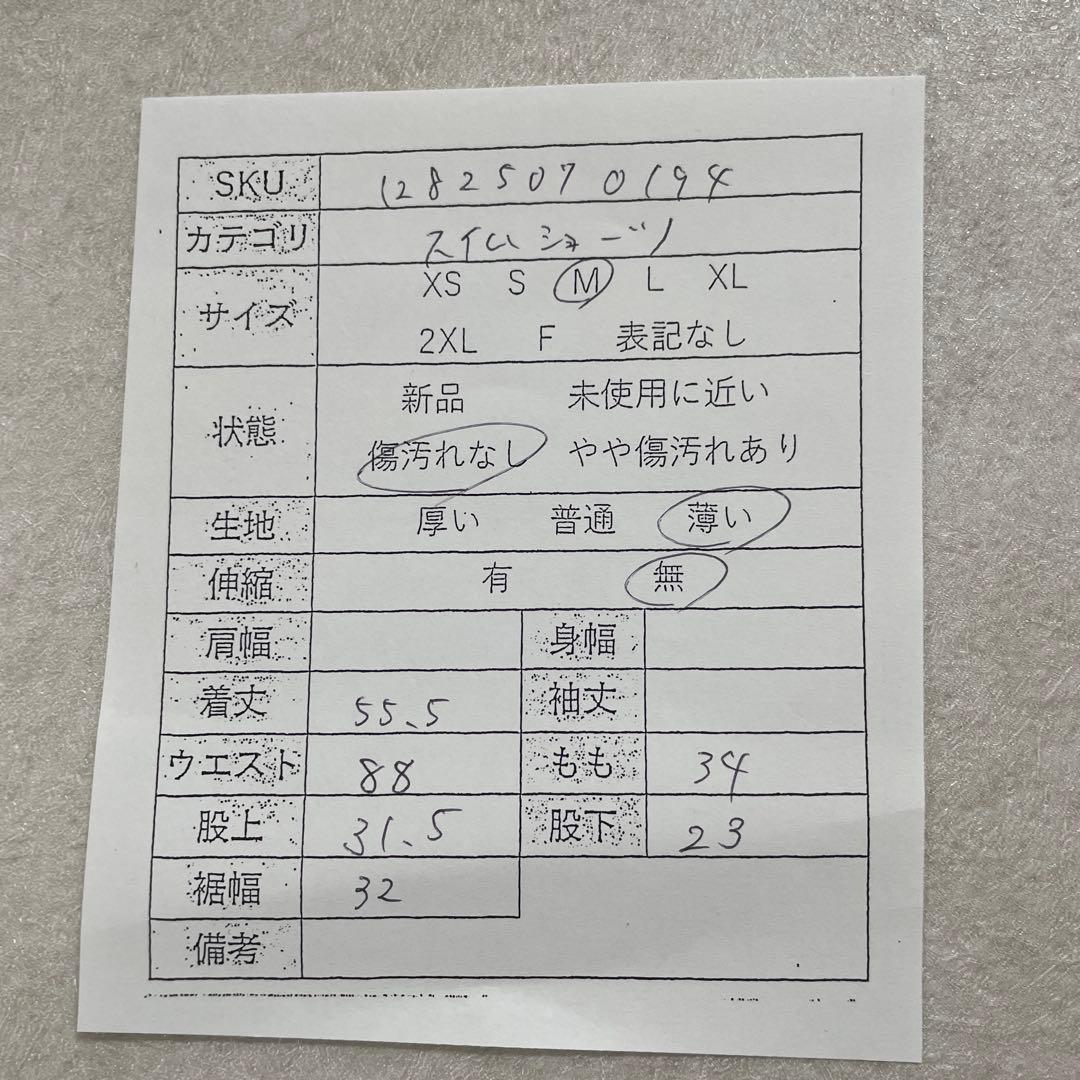 SKU 12825070194
カテゴリ スイムショーツ
サイズ XS S M L XL
2XL F 表記なし
状態 新品 未使用に近い
傷汚れなし やや傷汚れあり
生地 厚い 普通 薄い
伸縮 有 無
肩幅 身幅
着丈 55.5 袖丈
ウエスト 88 もも 34
股上 31.5 股下 23
裾幅 32
備考